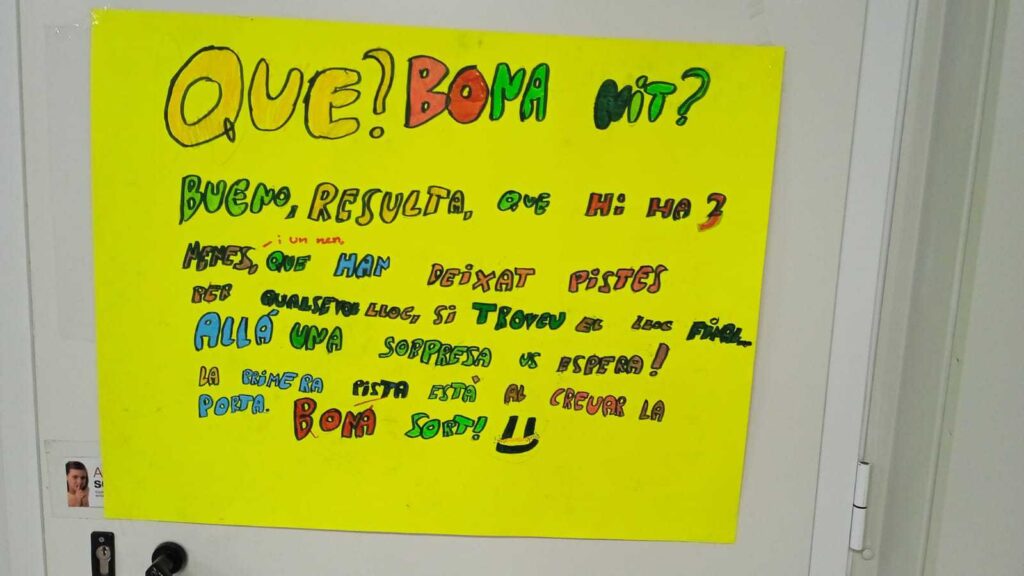 QUE? BONA NIT?
BUENO, RESULTA, QUE Hi HA 3
i un nen,
NENES, QUE HAN DEIXAT PISTES
PER QUALSEVOL LLOC, Si TROVEU EL LLOC FINAL...
ALLÁ UNA SORPRESA US ESPERA!
LA PRIMERA PISTA ESTÀ AL CREUAR LA
PORTA. BONA SORT!